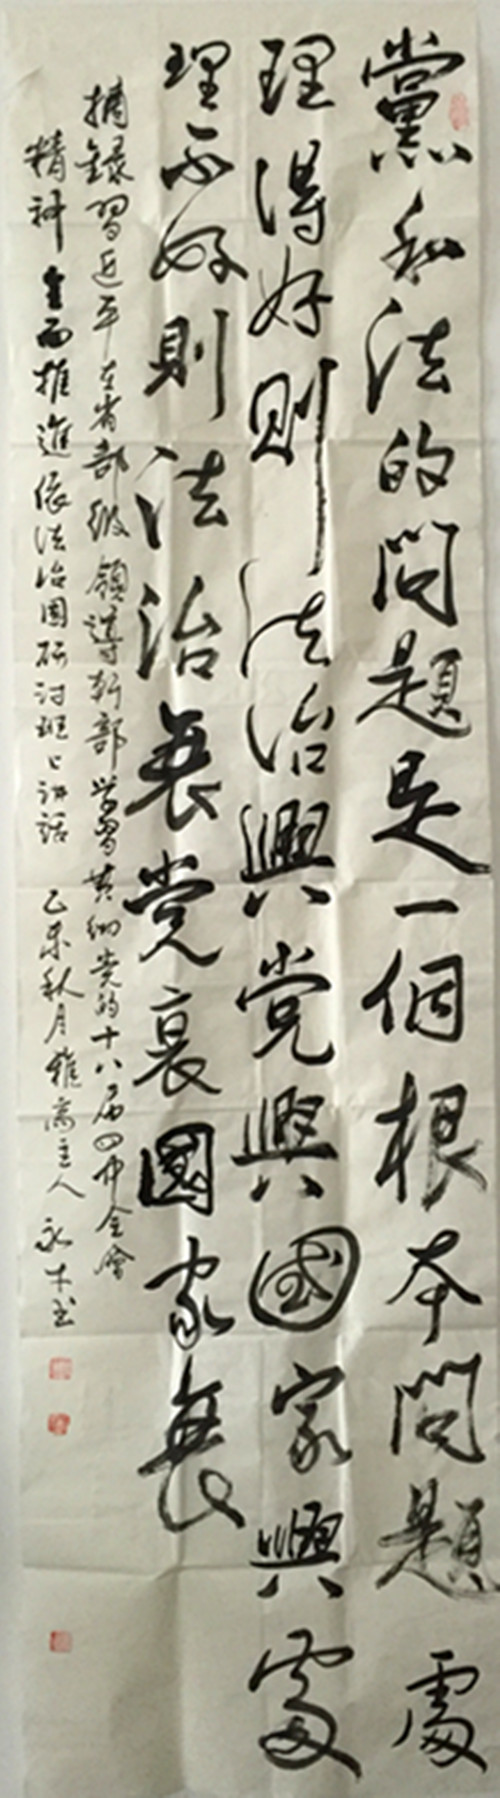 黨和法的問題是一個根本問題處
理得好則法治興党興國家興處
理不好則法治衰党衰國家衰
摘録習近平在省部級領導幹部学習貫彻党的十八届四中全會
精神全面推進依法治國研讨班上讲話 乙未秋月雅斋主人永木书